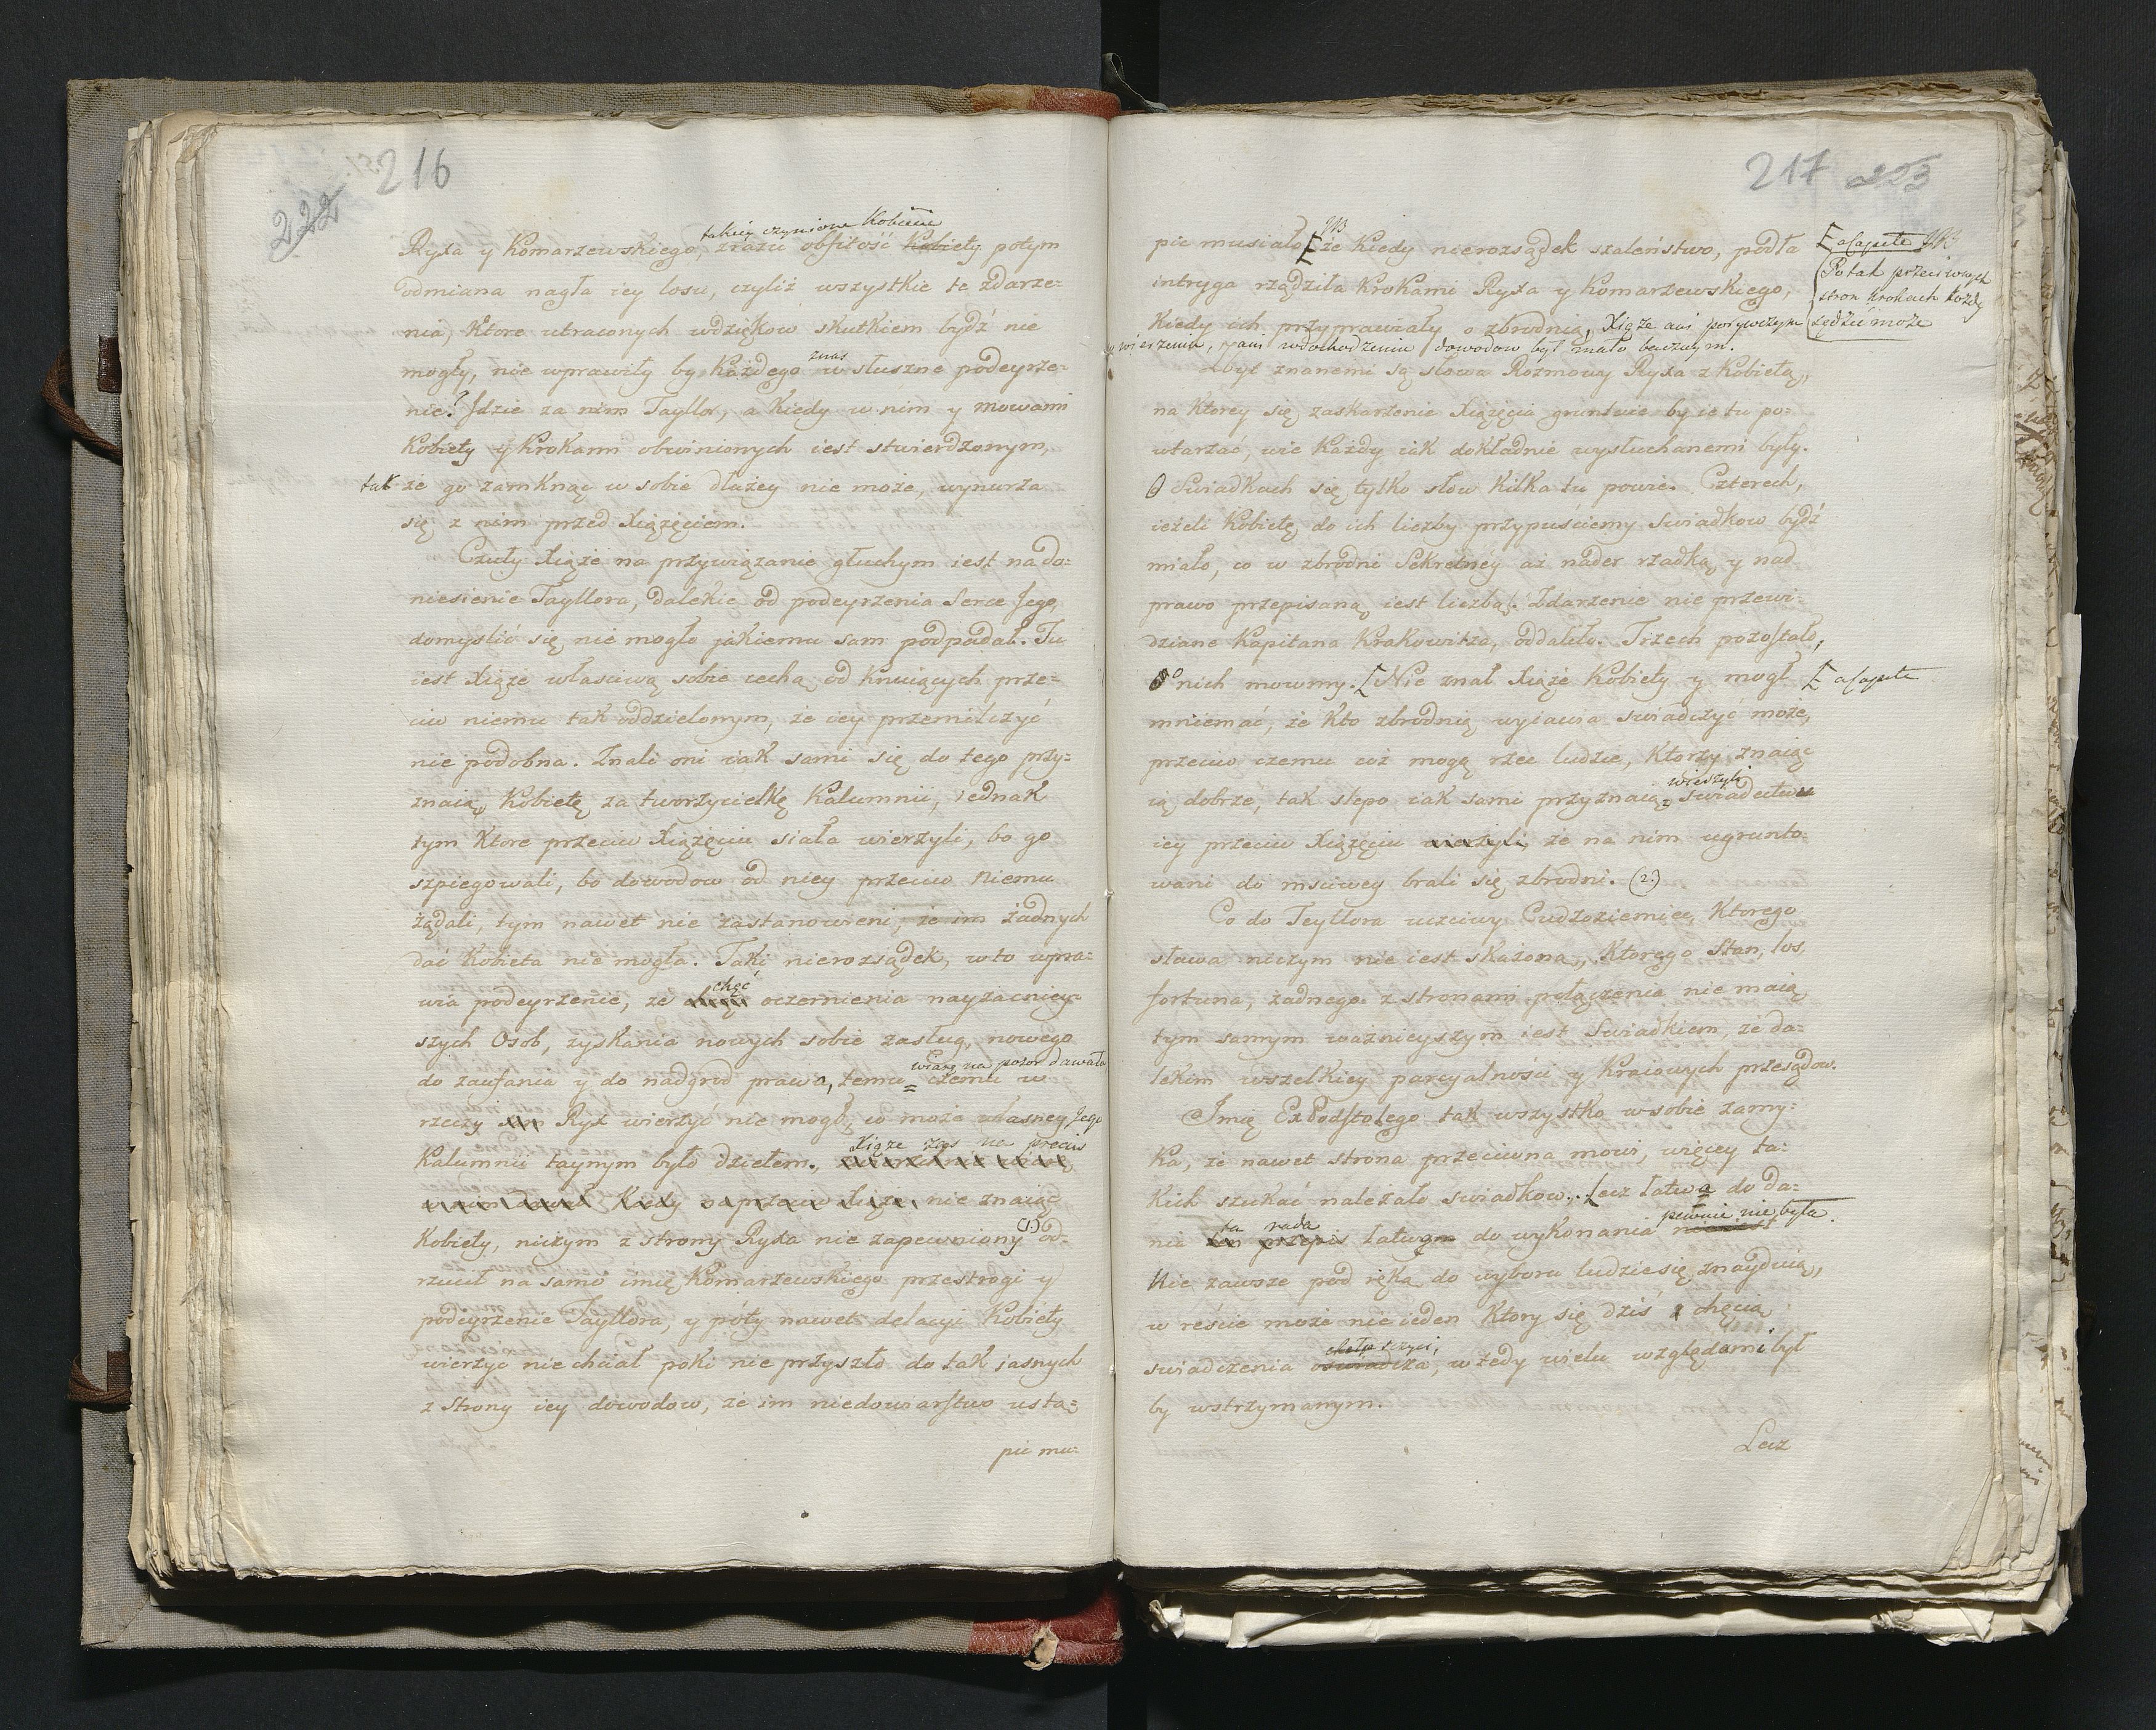 216
222
takiey czynione Kobiecie
Ryxa y Komarzewskiego, zrazu obfitość Kobiety potym
odmiana nagła iey losu, czyliż wszystkie te zdarze=
nia, Ktore utraconych wdziękow skutkiem bydź nie
znas
mogły, nie wprawiły by Każdego w słuszne podeyrze=
nie? Jdzie za nim Tayllor, a Kiedy w nim y mowami
Kobiety y Krokami obwinionych iest stwierdzonym,
tak że go zamknąć w sobie dłużey nie może, wynurza
się z nim przed Xiążęciem.
Czuły Xiąże na przywiązanie głuchym iest na do=
niesienie Tayllora, dalekie od podeyrzenia Serce Jego,
domyslić się nie mogło jakiemu sam podpadał. Tu
iest Xiąże własciwą sobie cechą od knuiących prze=
ciw niemu tak oddzielonym, że iey przemilczyć
nie podobna. Znali oni iak sami się do tego przy=
znaią, Kobietę za tworzycielkę Kalumnii, iednak
tym Ktore przeciw Xiążęciu siała wierzyli, bo go
szpiegowali, bo dowodow od niey przeciw niemu
żądali, tym nawet nie zastanowieni, że im żadnych
dać Kobieta nie mogła. Taki nierozsądek, w to wpra=
chęć
wia podeyrzenie, że chęci oczernienia nayzacniey=
szych Osob, zyskania nowych sobie zasług, nowego
wiarę na pozor dawała
do zaufania y do nadgrod prawa, temu czemu w
rzeczy Ryx wierzyć nie mogł, co może własney Jego
Xiąże zas na przeciw
Kalumnii taynym było dziełem.
Kiedy naprzeciw Xiąże, nie znaiąc
Kobiety, niczym z strony Ryxa nie zapewniony (1.) od=
rzucił na samo imię Komarzewskiego przestrogi y
podeyrzenie Tayllora, y póty nawet delacyi Kobiety
wierzyc nie chciał poki nie przyszło do tak jasnych
z Strony iey dowodow, że im niedowiarstwo ustą=
pić mu=
217 223
pic musiało [że Kiedy nierozsądek szaleństwo, podła
intryga rządziła Krokami Ryxa y Komarzewskiego,
Kiedy ich przyprawiały o zbrodnią, Xiąże ani porywczym
w wierzeniu, ani w dochodzeniu dowodow był mało bacznym.
[a Capite NB
Po tak przeciwnych
stron krokach każdy
sądzić może
Zbyt znanemi są słowa Rozmowy Ryxa z Kobietą,
na Ktorey się zaskarżenie Xiążęcia gruntuie by ie tu po=
wtarzać, wie Każdy iak dokładnie wysłuchanemi były.
O Swiadkach się tylko słow Kilka tu powie. Czterech,
ieżeli Kobietę do ich liczby przypuściemy Swiadkow bydź
miało, co w zbrodni Sekretney aż nader rzadką y nad
prawo przepisaną iest liczbą. Zdarzenie nie przewi=
dziane Kapitana Krakowitza, oddaliło. Trzech pozostało,
o nich mowmy. [Nie znał Xiąże Kobiety y mogł
[a Capite
mniemać, że Kto zbrodnią wyiawia swiadczyć może,
przeciw czemu coż mogą rzec ludzie, Ktorzy znaiąc
wierzyli
ią dobrze, tak slepo iak sami przyznaią swiadectwu
iey przeciw Xiążęciu wierzyli, że na nim ugrunto=
wani do msciwey brali się zbrodni. (2.)
Co do Teyllora uczciwy Cudzoziemiec, Ktorego
sława niczym nie iest skażona, Ktorego Stan, los,
fortuna, żadnego z stronami połączenia nie maią
tym samym ważnieyszym iest Swiadkiem, że da=
lekim wszelkiey parcyalności y Kraiowych przesądow.
Imię Ex Podstolego tak wszystko w sobie zamy=
ka, że nawet strona przeciwna mowi, więcey ta=
kich szukać należało swiadkow. Lecz łatwa do da=
ta rada pewnie nie była.
nia ten przepis łatwym do wykonania nie iest
Nie zawsze pod ręką do wyboru ludzie się znayduią,
w reście może nie ieden Ktory się dziś z chęcią
swiadczenia oswiadcza, w tedy wielu względami był
by wstrzymanym.
Lecz